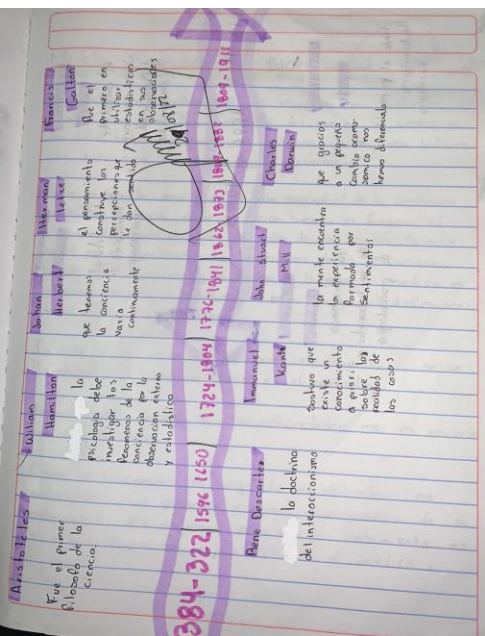 Aristoteles
Fue el primer
filosofo de la
ciencia.
Willian
Hamilton
la
psicologia debe
investigar los
fenomenos de la
conciencia por la
observacion externa
y estadistica
Johan
Herbert
que tenemos
la conciencia
varia
continuamente
Herman
el pensamiento
construye las
percepciones que
le dan sentido
Francis
Galton
Fue el
primero en
utilizar
estadisticos
en sus
observaciones
384-322 | 1596 1650 | 1724-1804 | 1776-1841 | 1862 1873 | 1882 | 1809-1911
Rene Descartes
la doctrina
del interaccionismo
Immanuel
Kant
Sostuvo que
existe un
conocimiento
a priori
sobre la
realidad de
las cosas
John Stuart
Mill
la mente encuentra
la experiencia
formada por
sentimientos
Charles
Darwin
que gracias
a un pequeño
cambio cromo
somico nos
hemos diferenciado